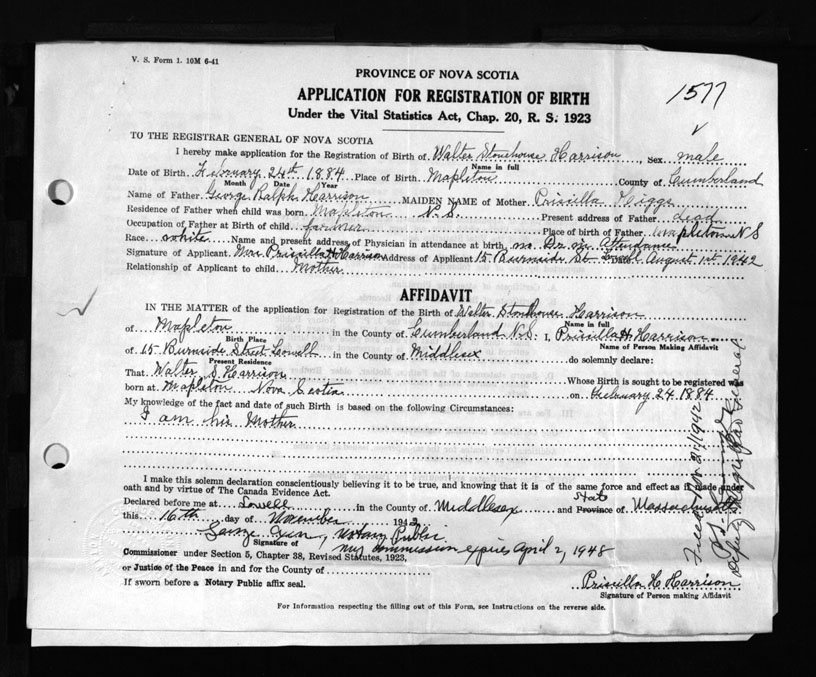 V. S. Form 1. 10M 6-41
PROVINCE OF NOVA SCOTIA
1577
APPLICATION FOR REGISTRATION OF BIRTH
Under the Vital Statistics Act, Chap. 20, R. S. 1923
TO THE REGISTRAR GENERAL OF NOVA SCOTIA
I hereby make application for the Registration of Birth of Walter Stonehouse Harrison, Sex male
Name in full
Date of Birth February 24th 1884 Place of Birth Mapleton County of Cumberland
Month Date Year
Name of Father George Ralph Harrison MAIDEN NAME of Mother Priscilla Higgs
Residence of Father when child was born Mapleton N.S. Present address of Father dead
Occupation of Father at Birth of child farmer Place of birth of Father Mapleton N S
Race white Name and present address of Physician in attendance at birth no Dr. in Attendance
Signature of Applicant Mrs Priscilla H Harrison Address of Applicant 15 Burnside St. Lowell Date August 1st 1942
Relationship of Applicant to child Mother
AFFIDAVIT
IN THE MATTER of the application for Registration of the Birth of Walter Stonehouse Harrison
Name in full
of Mapleton in the County of Cumberland N.S. I, Priscilla H. Harrison
Birth Place Name of Person Making Affidavit
of 15 Burnside Street Lowell in the County of Middlesex do solemnly declare:
Present Residence
That Walter S. Harrison Whose Birth is sought to be registered was
born at Mapleton Nova Scotia on February 24 1884
My knowledge of the fact and date of such Birth is based on the following Circumstances:
I am his Mother
I make this solemn declaration conscientiously believing it to be true, and knowing that it is of the same force and effect as if made under
oath and by virtue of The Canada Evidence Act.
State
Declared before me at Lowell in the County of Middlesex and Province of Massachusetts
this 16th day of November 1942
Notary Public
Signature of
my commission expires April 2, 1948
Commissioner under Section 5, Chapter 38, Revised Statutes, 1923,
or Justice of the Peace in and for the County of
If sworn before a Notary Public affix seal.
Priscilla H Harrison
Signature of Person making Affidavit
For Information respecting the filling out of this Form, see Instructions on the reverse side.
Filed Nov 21/1942
Deputy Registrar General